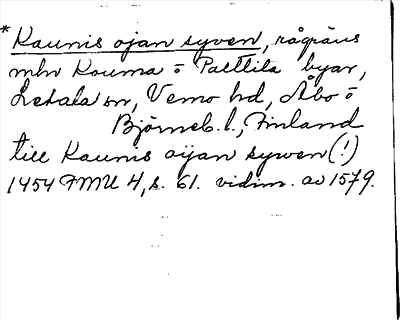 * Kaunis ojan syven, rågräns
mln Kouma o Palttila byar,
Letala sn, Vemo hd, Åbo o
Björneb. l., Finland
till Kaunis oijan sywen (!)
1454 FMU 4, s. 61. vidim. av 1579.